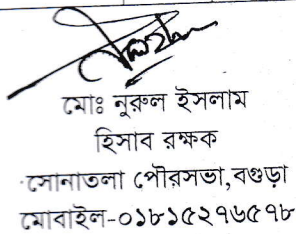 মোঃ নুরুল ইসলাম
হিসাব রক্ষক
সোনাতলা পৌরসভা,বগুড়া
মোবাইল-০১৮১৫২৭৬৫৭৮